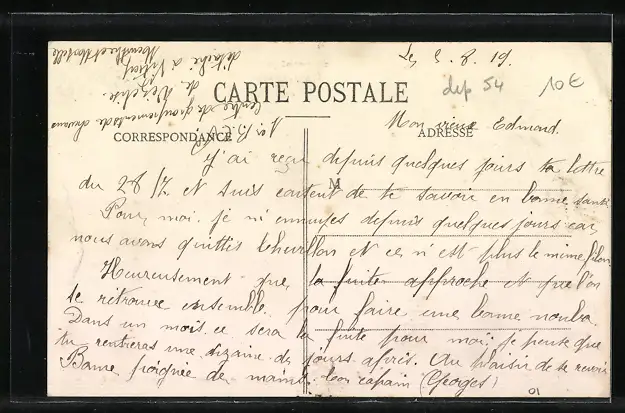 Le 3.8.19.
dep 54 10€
CARTE POSTALE
CORRESPONDANCE
ADRESSE
M
Mon vieux Edmond.
J'ai reçu depuis quelques jours ta lettre
du 28/7 et suis content de te savoir en bonne santé
Pour moi je m'ennuyes depuis quelques jours car
nous avons quittés et ce n'est plus le même filon.
Heureusement que la fuite approche et que l'on
se retrouve ensemble pour faire une bonne nouba.
Dans un mois ce sera la fuite pour moi; je pense que
tu rentreras une dizaine de jours après. Au plaisir de te revoir
Bonne poignée de mains. ton copain (Georges)
Centre de groupements de chevaux
de Vézelise.
détaché à
Meurthe et Moselle
01